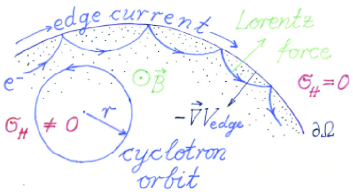 edge current
Lorentz
force
e⁻
⊙B⃗
σ_H = 0
-∇⃗V_edge
σ_H ≠ 0
r
∂Ω
cyclotron
orbit